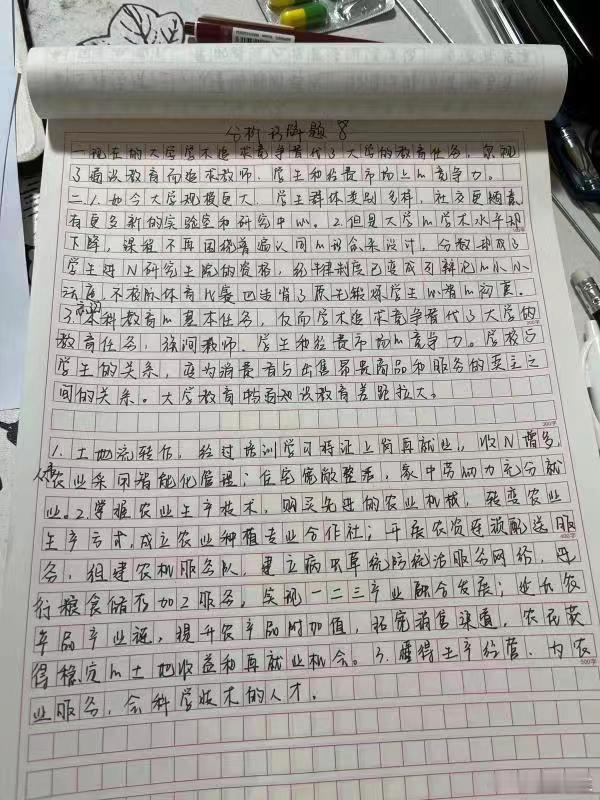 分析 解释题 8
一.现在的大学学术追求竞争替代了大学的教育任务,忽视
了通识教育而追求教师、学生和经费市场上m竞争力。
二.1.如今大学规模更大,学生群体类别多样,社交更频繁,
有更多新的实验室和研究中心。2.但是大学m学术水平却
下降,课程不再围绕普遍认同m理念来设计,分数却成了
学生进入研究生院的资格,纪律制度已变成可辩论m小小
法庭,不
3.本科教育m基本任务,反而学术追求竞争替代了大学的
教育任务,徒问教师、学生和经费市场m竞争力。学校与
学生的关系,变为消费者与出售昂贵商品和服务的卖主之
间的关系。大学教育与通识教育差距拉大。
1.土地流转后,经过培训学习持证上岗再就业,收入增多,
农业采用智能化管理;住宅宽敞整洁,家中劳动力充分就
业。2.掌握农业生产技术,购买先进的农业机械,转变农业
生产方式,成立农业种植专业合作社;开展农资连锁配送服
务,组建农机服务队,建立病虫草统防统治服务网络,进
行粮食储存加工服务,实现一二三产业融合发展;延长农
产品产业链,提升农产品附加值,拓宽销售渠道,农民获
得稳定m土地收益和再就业机会。3.懂得生产经营、为农
业服务,会科学技术的人才。
200字
300字
400字
500字